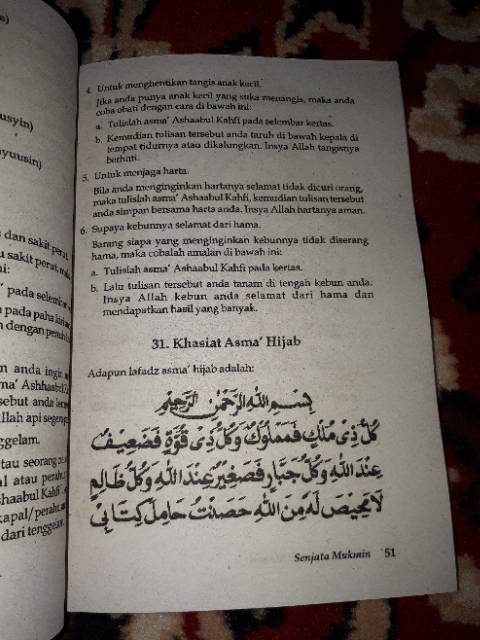 usyin)
yuusin)
dan sakit perut
u sakit perut, maka
ni:
pada selembar
pada paha kiri
dengan penuh
n anda ingin
ma' Ashhaabul
sebut anda
llah api segera
ggelam.
tau seorang
al atau perahu
shaabul Kahfi
kapal/perahu
dari tenggelam
4. Untuk menghentikan tangis anak kecil.
Jika anda punya anak kecil yang suka menangis, maka anda
coba obati dengan cara di bawah ini:
a. Tulislah asma' Ashaabul Kahfi pada selembar kertas.
b. Kemudian tulisan tersebut anda taruh di bawah kepala di
tempat tidurnya atau dikalungkan. Insya Allah tangisnya
berhenti.
5. Untuk menjaga harta.
Bila anda menginginkan hartanya selamat tidak dicuri orang,
maka tulislah asma' Ashaabul Kahfi, kemudian tulisan tersebut
anda simpan bersama harta anda. Insya Allah hartanya aman.
6. Supaya kebunnya selamat dari hama.
Barang siapa yang menginginkan kebunnya tidak diserang
hama, maka cobalah amalan di bawah ini:
a. Tulislah asma' Ashaabul Kahfi pada kertas.
b. Lalu tulisan tersebut anda tanam di tengah kebun anda.
Insya Allah kebun anda selamat dari hama dan
mendapatkan hasil yang banyak.
31. Khasiat Asma' Hijab
Adapun lafadz asma' hijab adalah:
بِسْمِ اللهِ الرَّحْمٰنِ الرَّحِيْمِ
كُلُّ ذِيْ مُلْكٍ فَمَمْلُوْكٌ وَكُلُّ ذِيْ قُوَّةٍ فَضَعِيْفٌ
عِنْدَ اللهِ وَكُلُّ جَبَّارٍ فَصَغِيْرٌ عِنْدَ اللهِ وَكُلُّ ظَالِمٍ
لَا مَحِيْصَ لَهُ مِنَ اللهِ حَصَنْتُ حَامِلَ كِتَابِيْ
Senjata Mukmin 51